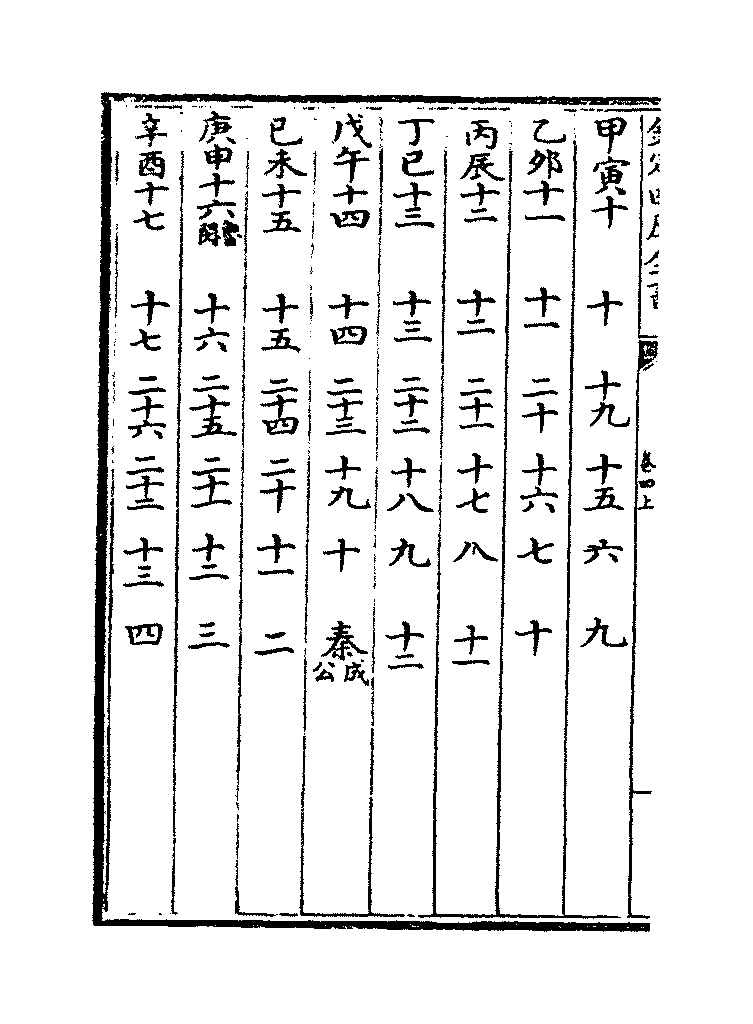 欽定四庫全書 卷四上
甲寅十 十 十九 十五 六 九
乙夘十一 十一 二十 十六 七 十
丙辰十二 十二 二十一 十七 八 十一
丁巳十三 十三 二十二 十八 九 十二
戊午十四 十四 二十三 十九 十 秦成公
己未十五 十五 二十四 二十 十一 二
庚申十六 十六 二十五 二十一 十二 三
辛酉十七 十七 二十六 二十二 十三 四